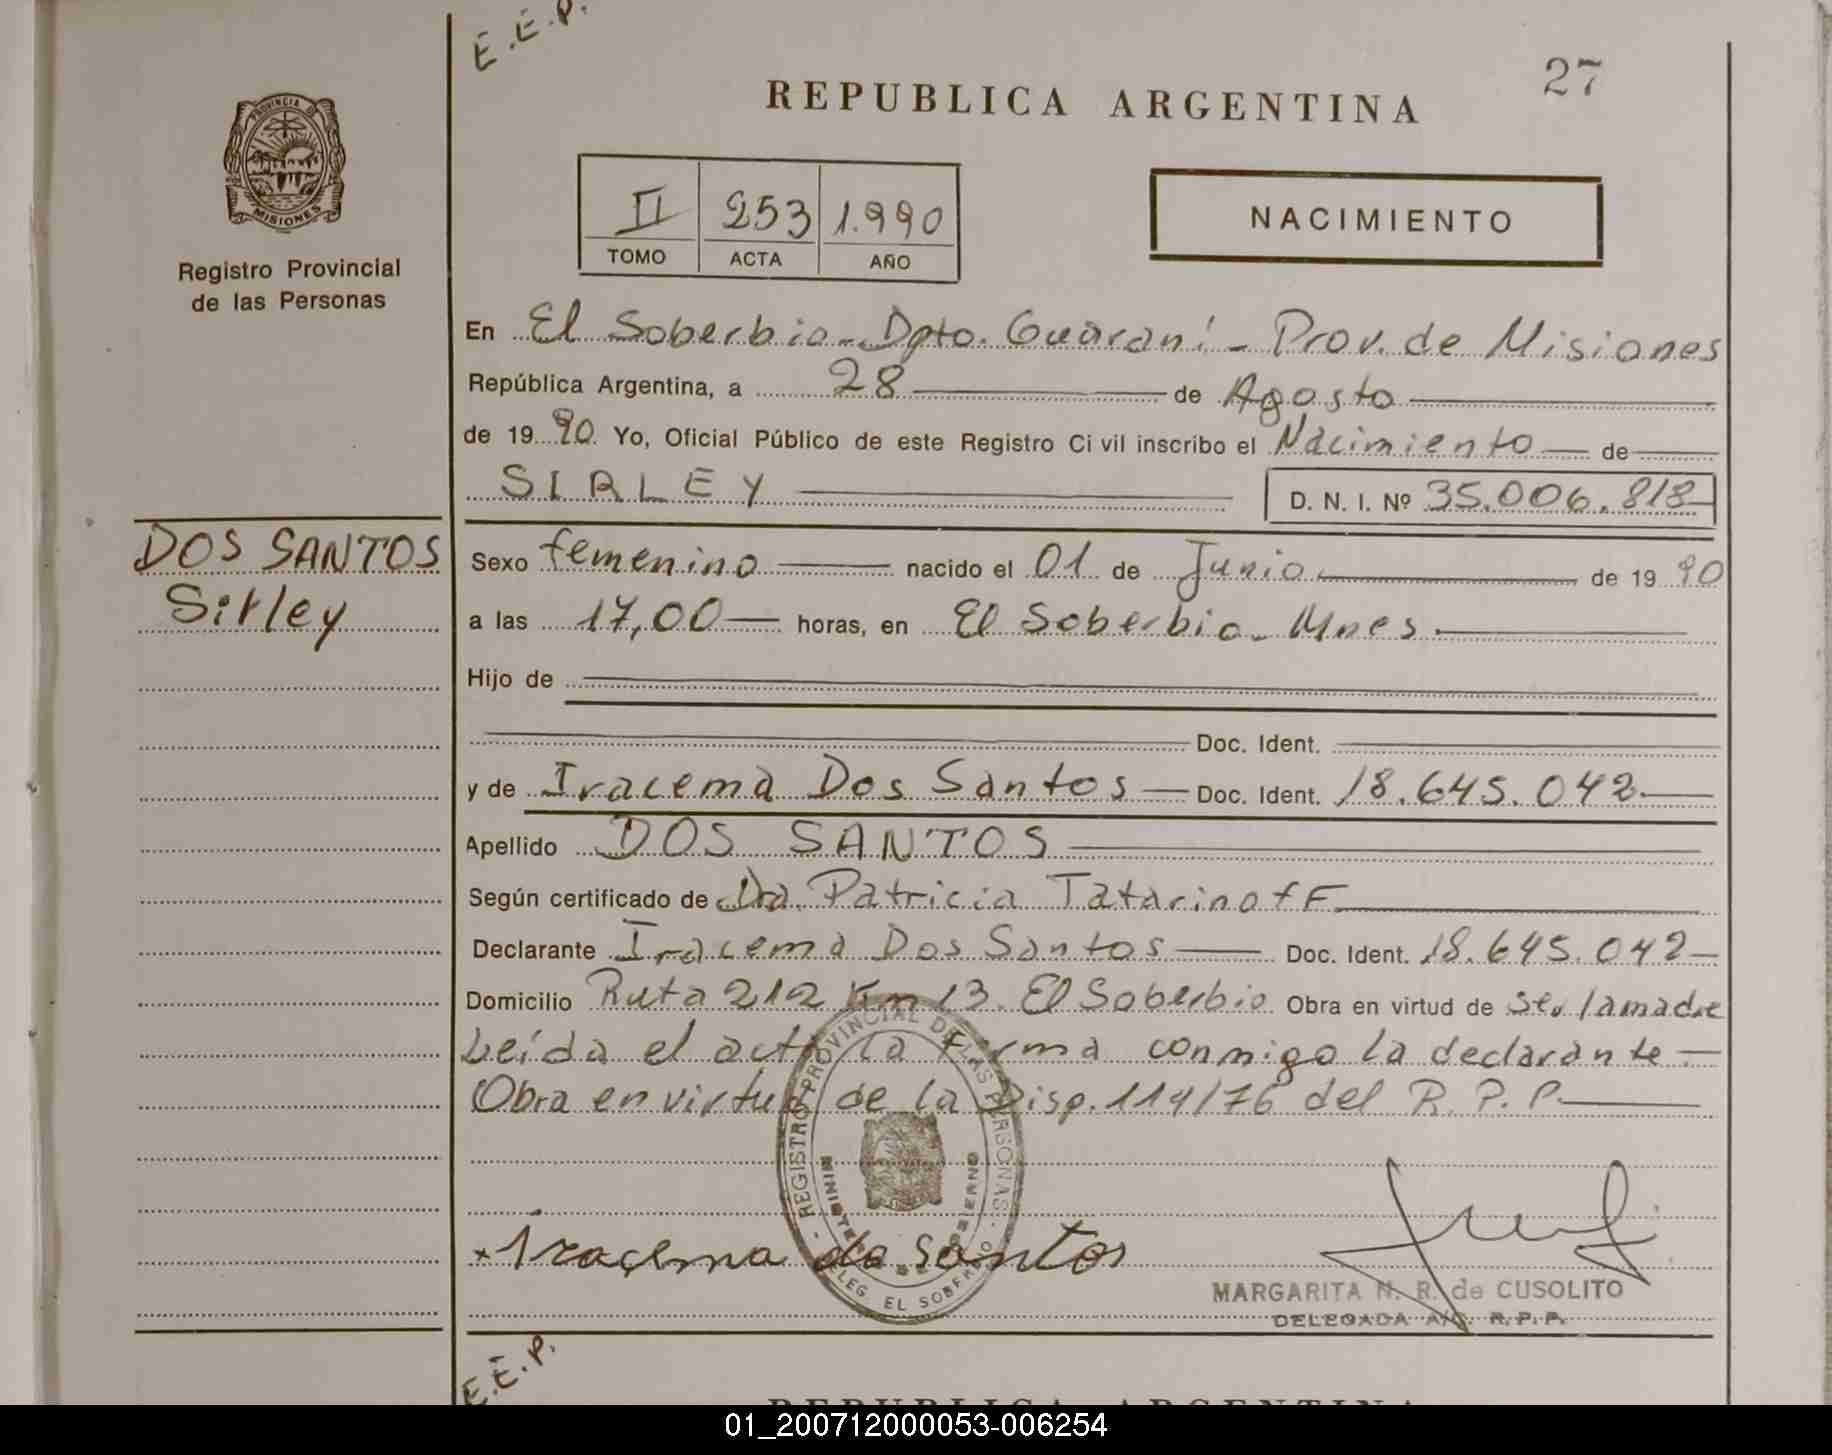 E.E.P.
27
REPUBLICA ARGENTINA
PROVINCIA D
MISIONES
Registro Provincial
de las Personas
II 253 1.990
TOMO ACTA AÑO
NACIMIENTO
En El Soberbio - Dpto. Guaraní - Prov. de Misiones
República Argentina, a 28 de Agosto
de 19 90 Yo, Oficial Público de este Registro Ci vil inscribo el Nacimiento de
SIRLEY D. N. I. Nº 35.006.818
DOS SANTOS
Sirley
Sexo femenino nacido el 01 de Junio de 19 90
a las 17,00 horas, en El Soberbio - Mnes.
Hijo de
Doc. Ident.
y de Iracema Dos Santos Doc. Ident. 18.645.042
Apellido DOS SANTOS
Según certificado de Dra. Patricia Tatarinoff
Declarante Iracema Dos Santos Doc. Ident. 18.645.042
Domicilio Ruta 212 Km 13. El Soberbio Obra en virtud de ser la madre
Leída el acta la firma conmigo la declarante
Obra en virtud de la Disp. 114/76 del R. P. P.
REGISTRO PROVINCIAL DE LAS PERSONAS
DELEG. EL SOBERBIO
Iraçema do Santos
MARGARITA N. R. de CUSOLITO
DELEGADA A/C. R.P.P.
E.E.P.
REPUBLICA ARGENTINA
01_200712000053-006254